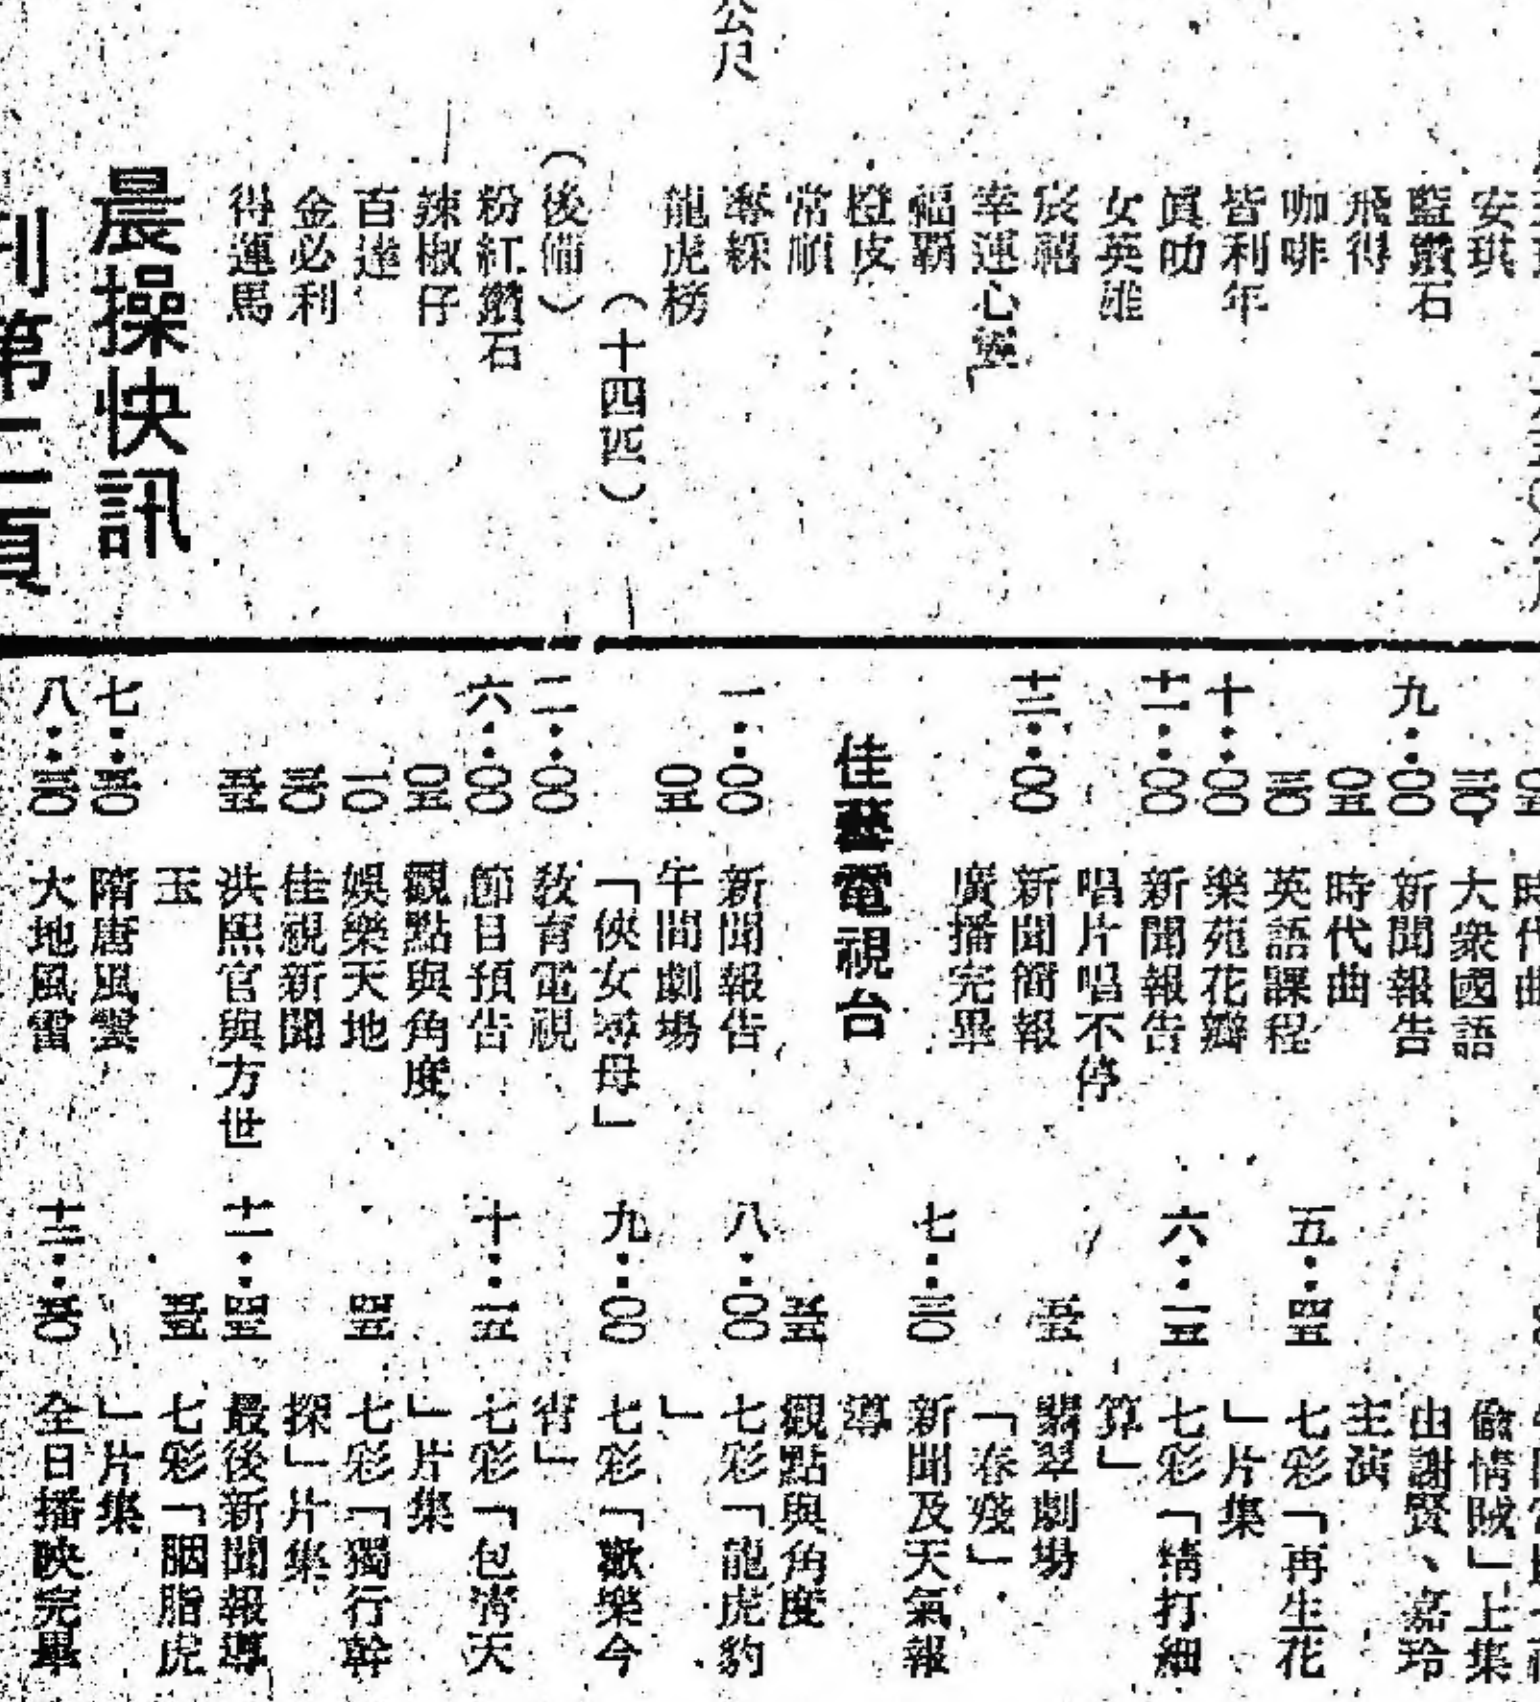 公尺
安琪
藍鑽石
飛得
咖啡
皆利年
眞叻
女英雄
宸禧
幸運心
福霸
橙皮
常順
奪綵
龍虎榜
（十四匹）
（後備）
粉紅鑽石
辣椒仔
百達
金必利
得運馬
晨操快訊
刋第二頁
時代曲
三〇 大衆國語
九：〇〇 新聞報告
〇五 時代曲
三〇 英語課程
十：〇〇 樂苑花瓣
十一：〇〇 新聞報告
唱片唱不停
十二：〇〇 新聞簡報
廣播完畢
佳藝電視台
一：〇〇 新聞報告
〇五 午間劇場
「俠女尋母」
二：〇〇 敎育電視
六：〇〇 節目預告
〇五 觀點與角度
一〇 娛樂天地
三〇 佳視新聞
五五 洪熙官與方世
玉
七：五〇 隋唐風雲
八：三〇 大地風雷
偸情賊」上集
由謝賢、嘉玲
主演
五：四五 七彩「再生花
」片集
六：一五 七彩「精打細
算」
五五 翡翠劇場
「春殘」
七：三〇 新聞及天氣報
導
五五 觀點與角度
八：〇〇 七彩「龍虎豹
」
九：〇〇 七彩「歡樂今
宵」
十：一五 七彩「包靑天
」片集
四五 七彩「獨行幹
探」片集
十一：四五 最後新聞報導
五五 七彩「胭脂虎
」片集
十二：五〇 全日播映完畢